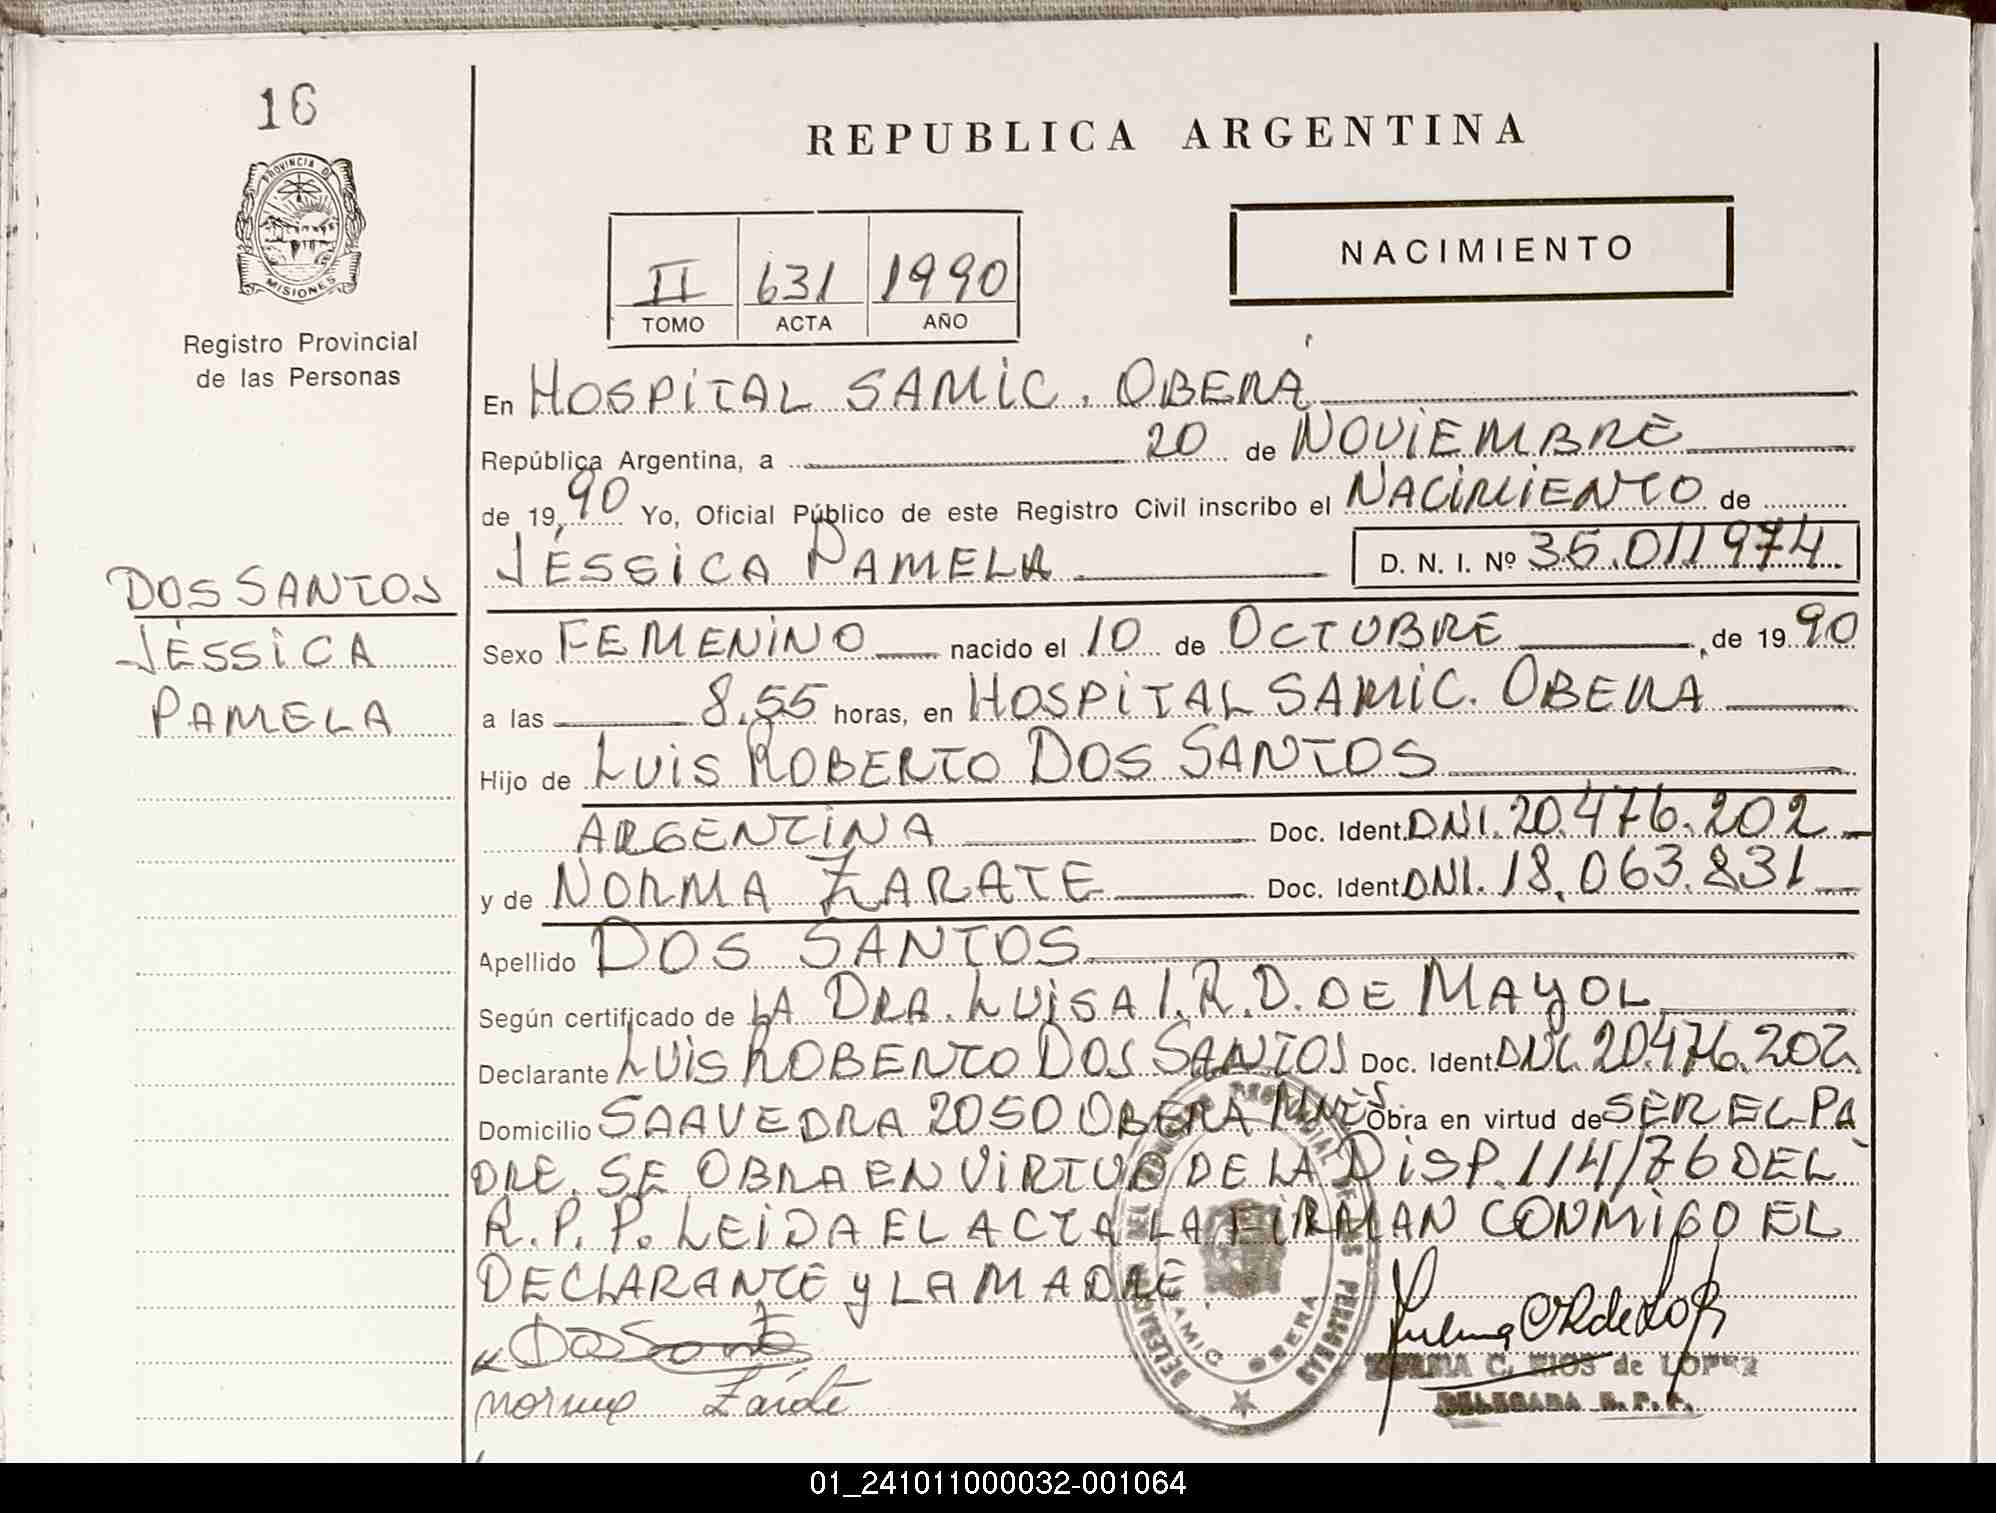 16
PROVINCIA DE
MISIONES
Registro Provincial
de las Personas
REPUBLICA ARGENTINA
II 631 1990
TOMO ACTA AÑO
NACIMIENTO
En HOSPITAL SAMIC. OBERÁ
República Argentina, a 20 de NOVIEMBRE
de 19 90 Yo, Oficial Público de este Registro Civil inscribo el NACIMIENTO de
JÉSSICA PAMELA D. N. I. Nº 35.011974
DOS SANTOS
JÉSSICA
PAMELA
Sexo FEMENINO nacido el 10 de OCTUBRE, de 19 90
a las 8.55 horas, en HOSPITAL SAMIC. OBERA
Hijo de LUIS ROBERTO DOS SANTOS
ARGENTINA Doc. Ident. DNI. 20.476.202
y de NORMA ZARATE Doc. Ident. DNI. 18.063.831
Apellido DOS SANTOS
Según certificado de LA DRA. LUISA I. R. D. DE MAYOL
Declarante LUIS ROBERTO DOS SANTOS Doc. Ident. DNI. 20.476.202
Domicilio SAAVEDRA 2050 OBERA MNES. Obra en virtud de SER EL PA
DRE. SE OBRA EN VIRTUD DE LA DISP. 114/76 DEL
R. P. P. LEIDA EL ACTA LA FIRMAN CONMIGO EL
DECLARANTE y LA MADRE.
DosSantos
Norma Zárate
NORMA C. RIOS de LOPEZ
DELEGADA R. P. P.
SAMIC OBERA
01_241011000032-001064